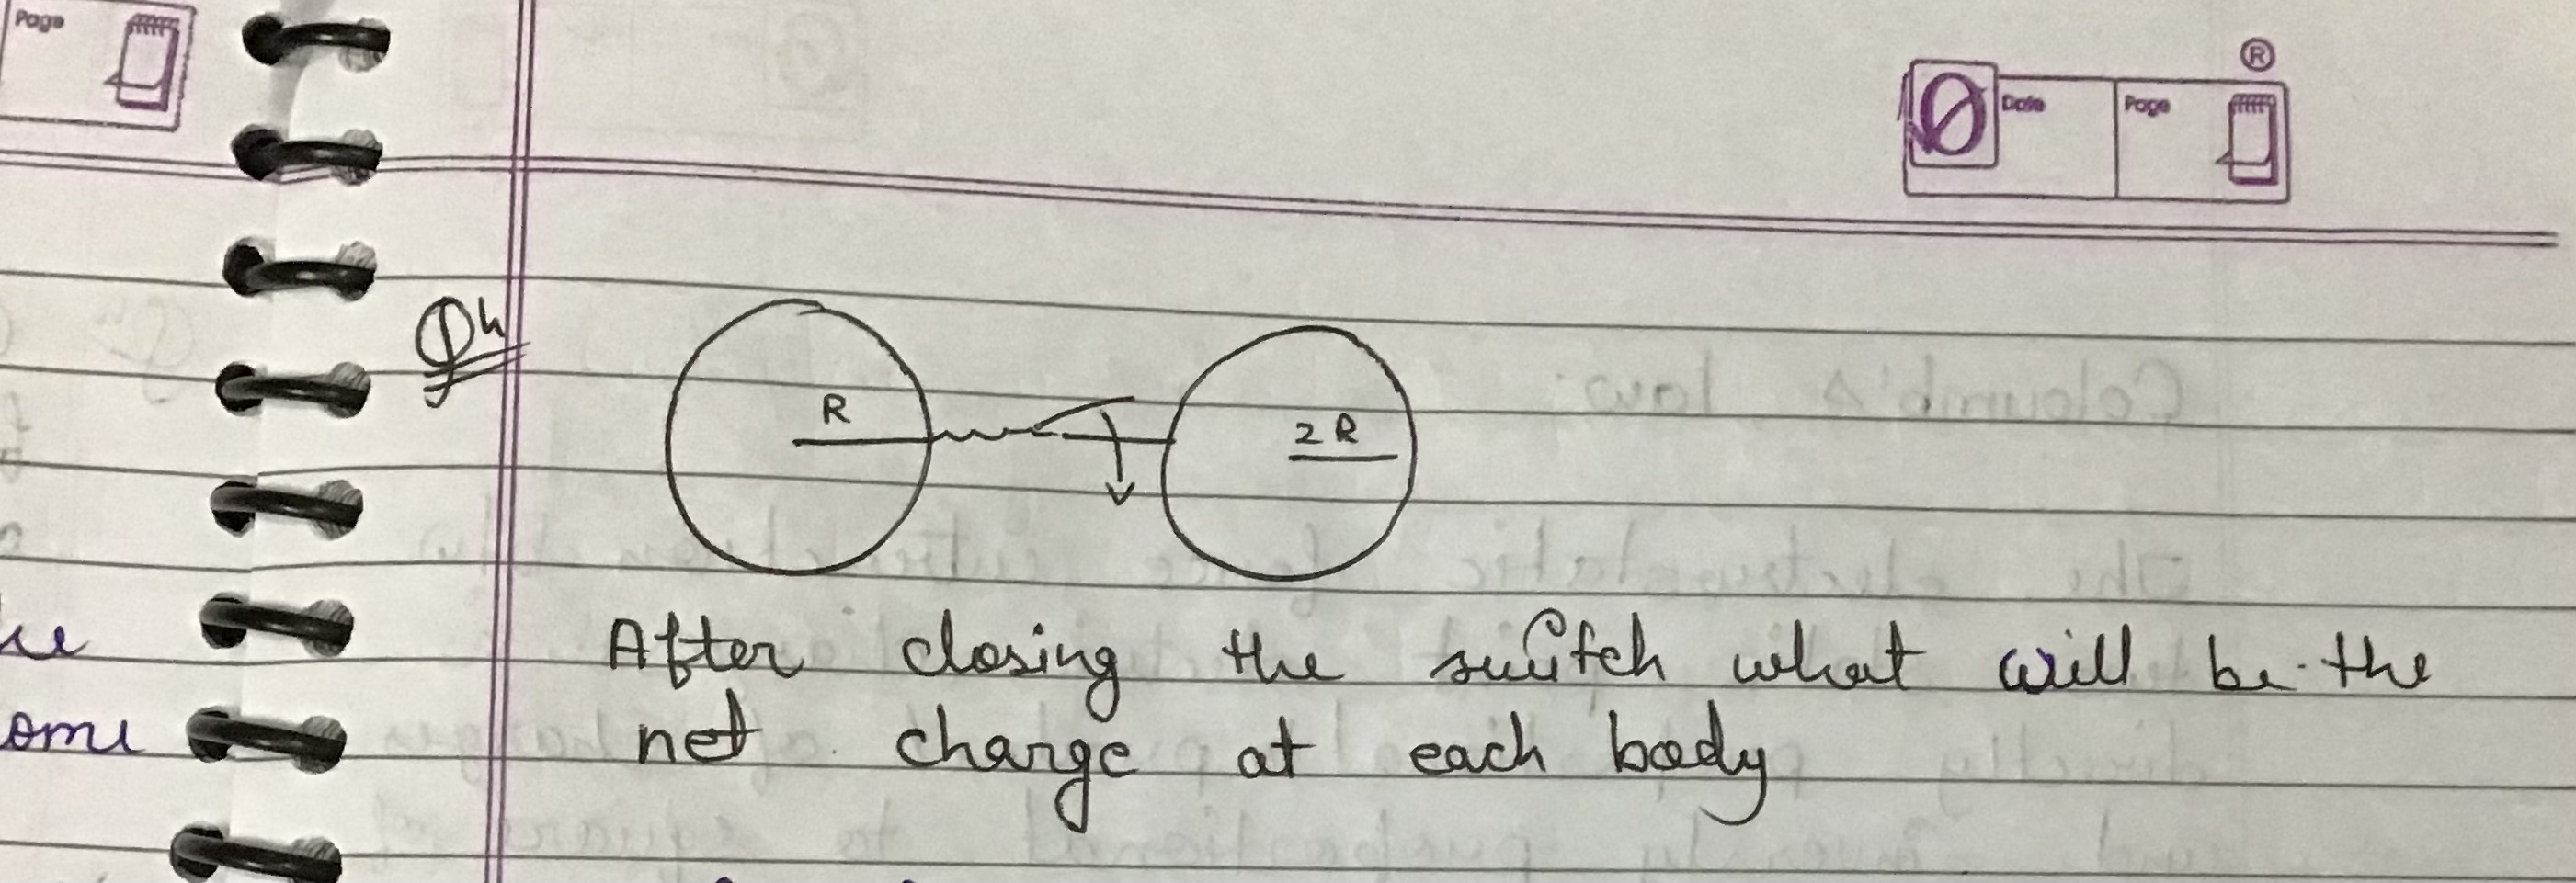 Page
®
Date Page
Qⁿ
R
2R
After closing the switch what will be the
ome net charge at each body